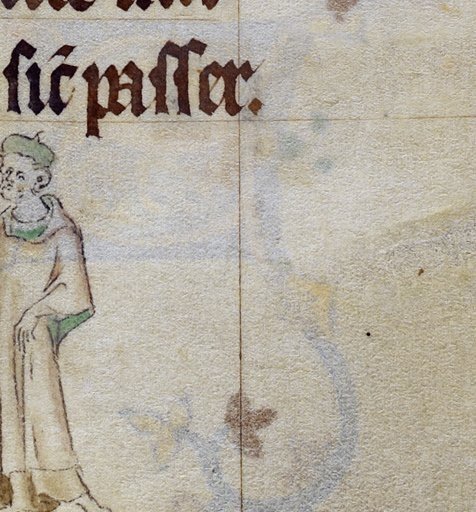 sic̄ passer.